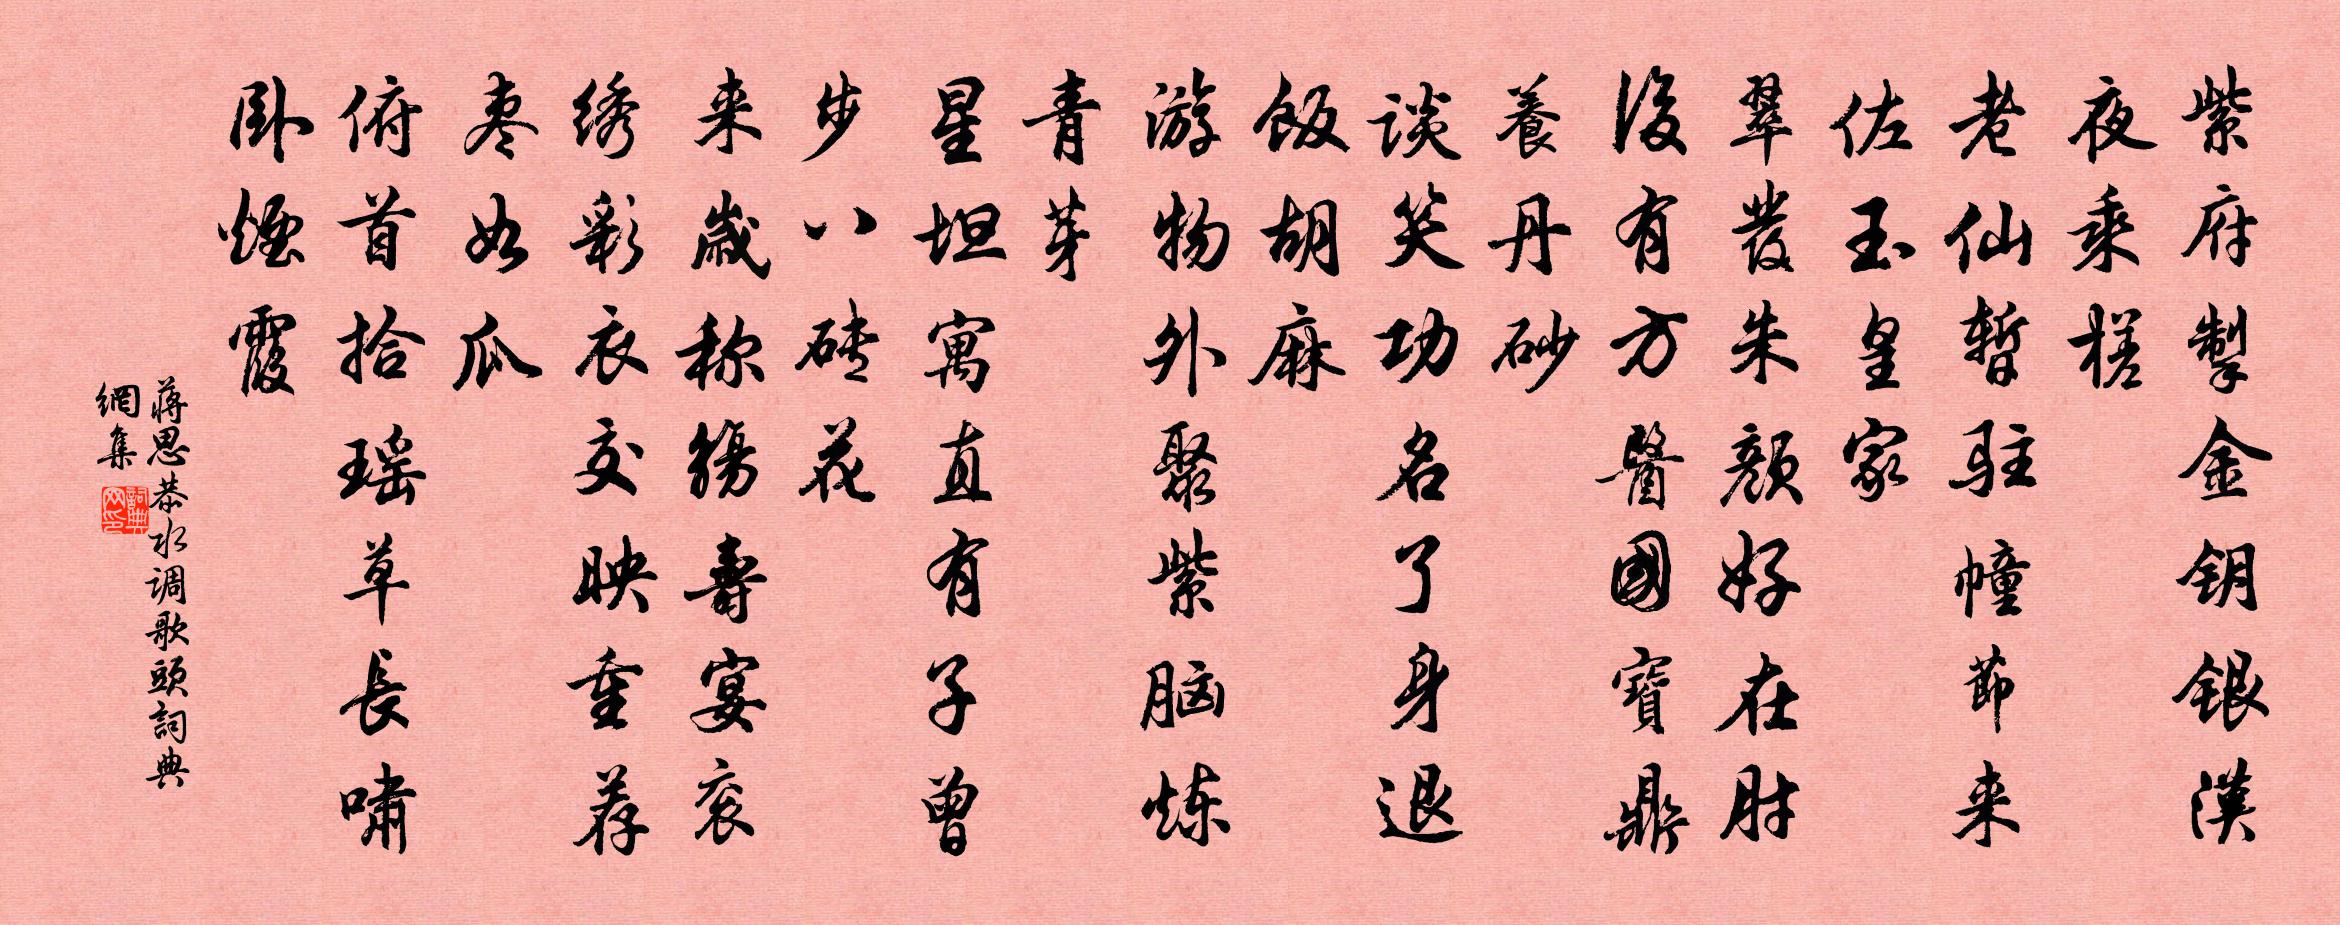 紫府掣金钥银漢
夜乘槎
老仙暫駐幢節来
佐玉皇家
翠發朱顔好在肘
後有方醫國寶鼎
養丹砂
談笑功名了身退
飯胡麻
游物外聚紫脑炼
青芽
星坦寓直有子曾
步八磚花
来歲称觴壽宴衮
绣彩衣交映重荐
枣如瓜
俯首拾瑶草長啸
卧煙霞
蒋思恭水调歌頭詞典
網集
詞典
网印